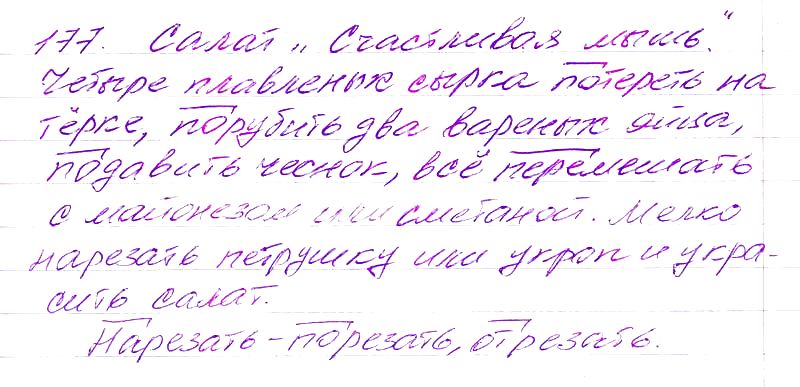 177. Салат „Счастливая мышь."
Четыре плавленых сырка потереть на
тёрке, порубить два вареных яйца,
подавить чеснок, всё перемешать
с майонезом или сметаной. Мелко
нарезать петрушку или укроп и укра-
сить салат.
Нарезать - порезать, отрезать.